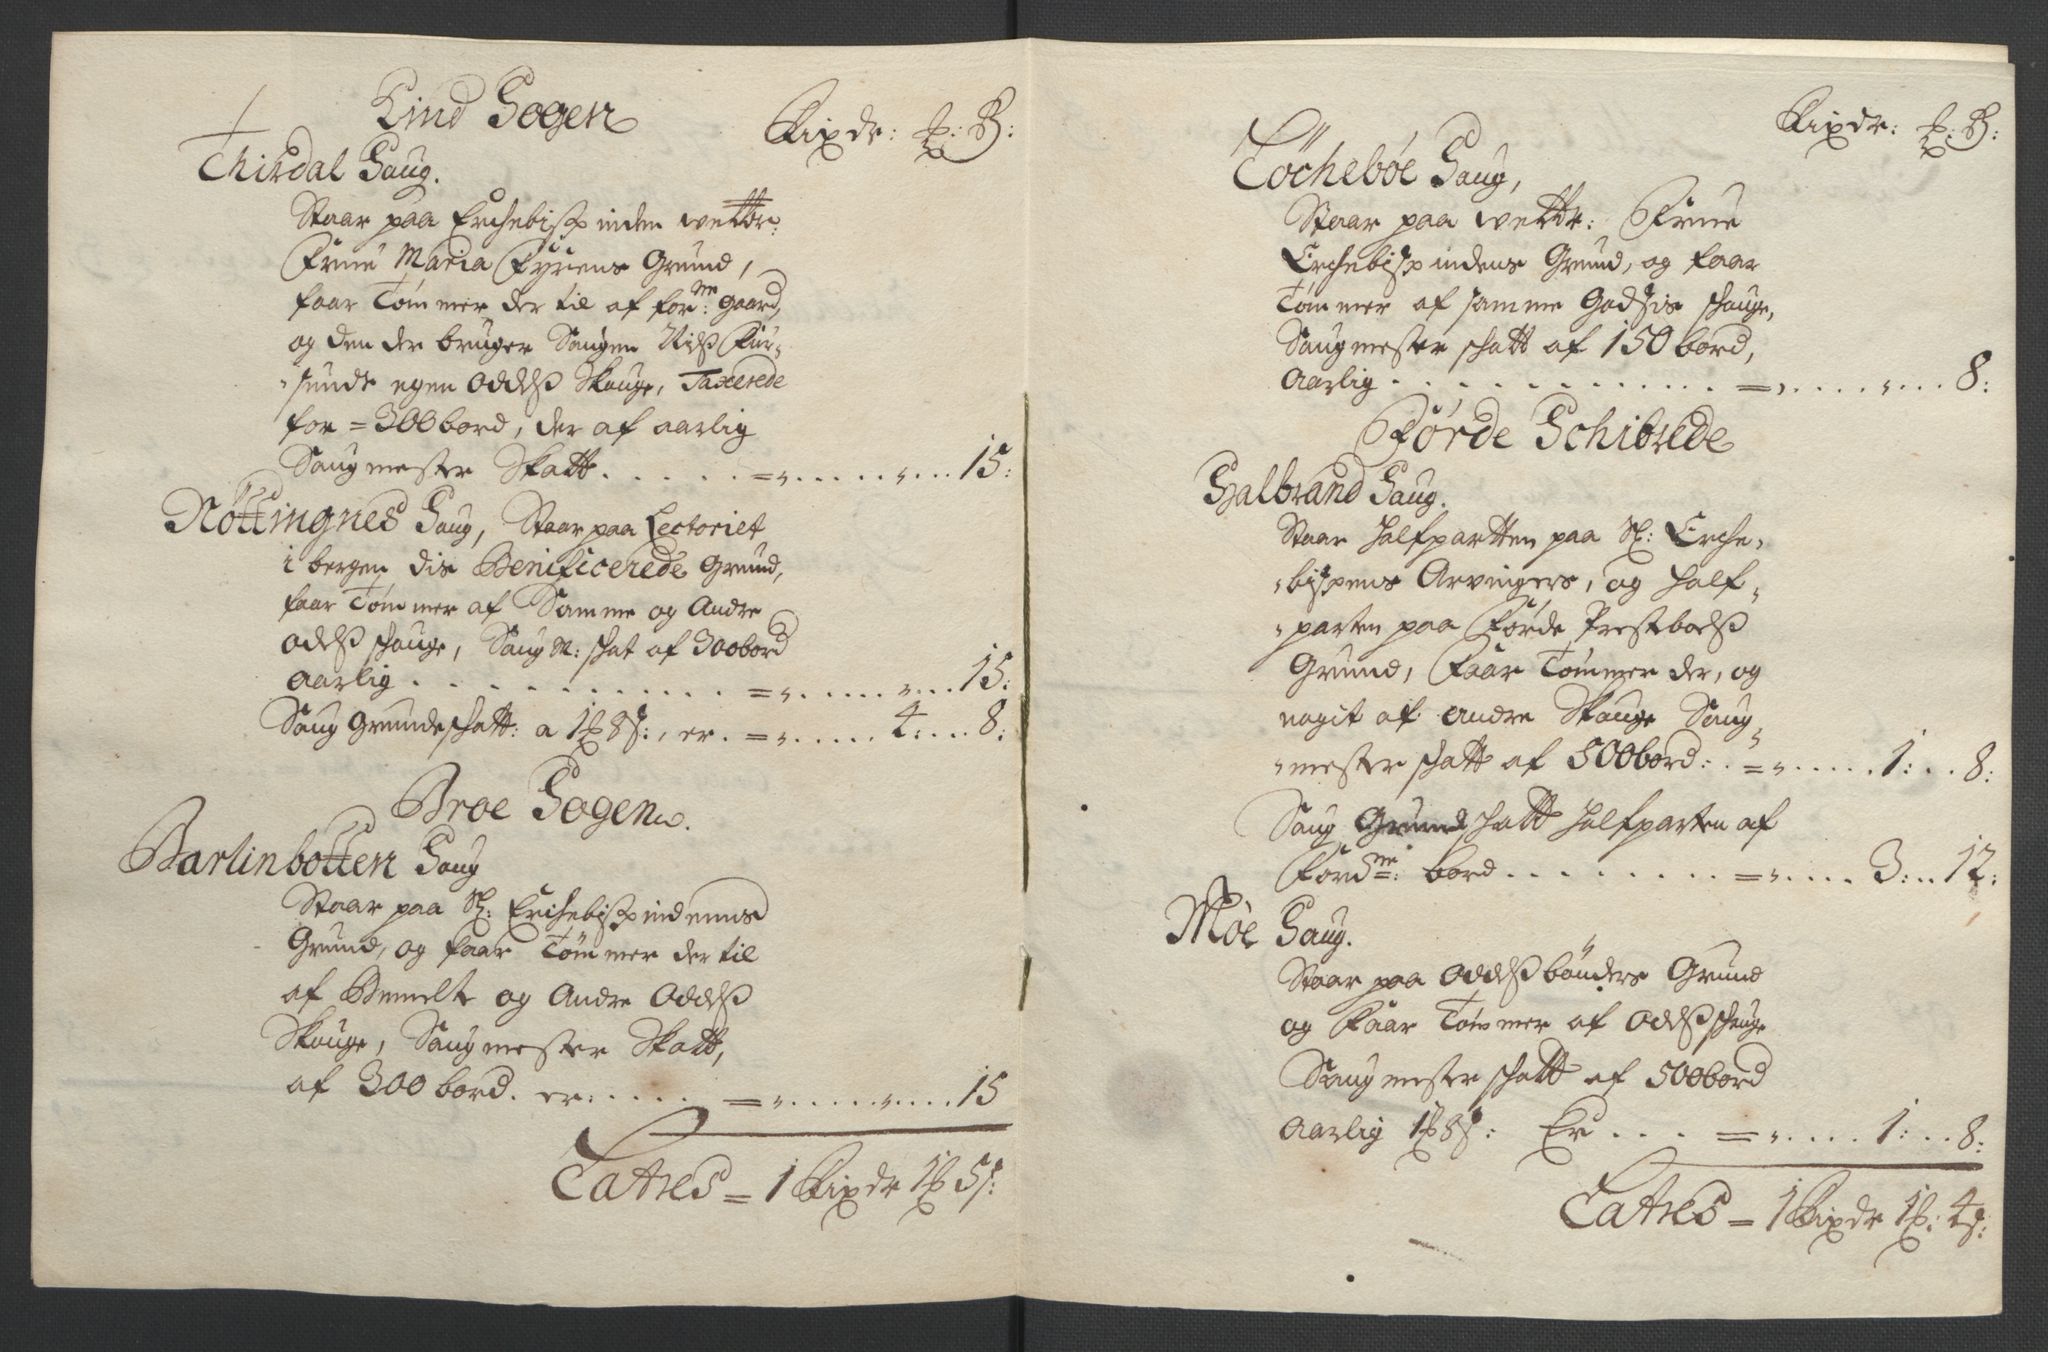 Kind Sogen
Rixdr: ȶ: ß:
Thirdal Saug.
Staar paa Erchebispinden wettr:
Frue Maria Fyrens Grund,
faar Tømmer der til af forne: gaard,
og den der bruger Saugen Nilß
sunds egen Oddelß Skouge, Taxerede
for = 300 bord, der af aarlig
Saugmester Skatt . . . . . = „ . . . . . „ . . . 15:
Nöttingnes Saug, Staar paa Lectoriet
i bergen dis Benificerede Grund,
faar Tømmer af Samme og Andre
Odelß schouge, Saug M: schat af 300 bord
Aarlig . . . . . . . . . . . = „ . . . . . „ . . . 15:
Saug Grunde schatt: a 1ȶ 8ß:, er . = „ . . . . . 4: . . . 8:
Broe Sogen.
Barlinbotten Saug
Staar paa Sl: Erchebispindenns
Grund, og faar Tømmer der til
af Bemelte og Andre Oddelß
Skouge, Saugmester Skatt,
af 300 bord. er: . . . . . = „ . . . . . „ . . . . 15
Latres = 1 Rixdr 1ȶ 5ß:
Rixdr: ȶ: ß:
Töchebøe Saug,
Staar paa wettr: Frue
Erchebispindens Grund, og faar
Tømmer af samme Godzis schouge,
Saugmester schatt af 150 bord,
Aarlig . . . . . . . . . . . . = „ . . . . „ . . . 8:
Førde Schibrede
Halbrand Saug.
Staar halfpartten paa Sl: Erche„
„bispens Arvingers, og half„
„parten paa Førde Prestebolß
Grund, Faar Tømmer der, og
nogit af andre Skouge Saug„
„mester schatt af 500 bord: . = „ . . . . . 1: . . 8:
Saug Grund schatt halfparten af
Fordne: bord . . . . . . . . = „ . . . . 3: . . 12:
Moe Saug.
Staar paa Oddelß bönders Grund
og Faar Tømmer af Oddelß schouge
Saugmester schatt af 500 bord
Aarlig 1ȶ 8ß: Er . . . = „ . . . . 1: . . 8:
Latres = 1 Rixdr 1ȶ: 4ß: